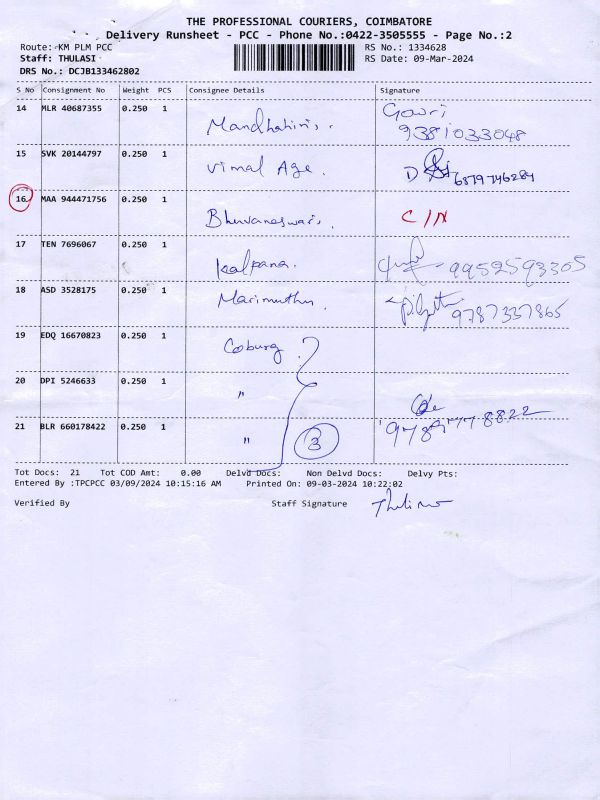 THE PROFESSIONAL COURIERS, COIMBATORE
Delivery Runsheet - PCC - Phone No.:0422-3505555 - Page No.:2
Route: KM PLM PCC RS No.: 1334628
Staff: THULASI RS Date: 09-Mar-2024
DRS No.: DCJB133462802
S No Consignment No Weight PCS Consignee Details Signature
14 MLR 40687355 0.250 1 Gowri
9381033048
15 SVK 20144797 0.250 1 Vimal Age. D 6879746284
16 MAA 944471756 0.250 1 Bhuvaneswari. C/N
17 TEN 7696067 0.250 1 Kalpana. 9952593305
18 ASD 3528175 0.250 1 Marimuthu. 9787337865
19 EDQ 16670823 0.250 1 Coburg
20 DPI 5246633 0.250 1 "
21 BLR 660178422 0.250 1 " 3
Tot Docs: 21 Tot COD Amt: 0.00 Delvd Docs: Non Delvd Docs: Delvy Pts:
Entered By :TPCPCC 03/09/2024 10:15:16 AM Printed On: 09-03-2024 10:22:02
Verified By Staff Signature